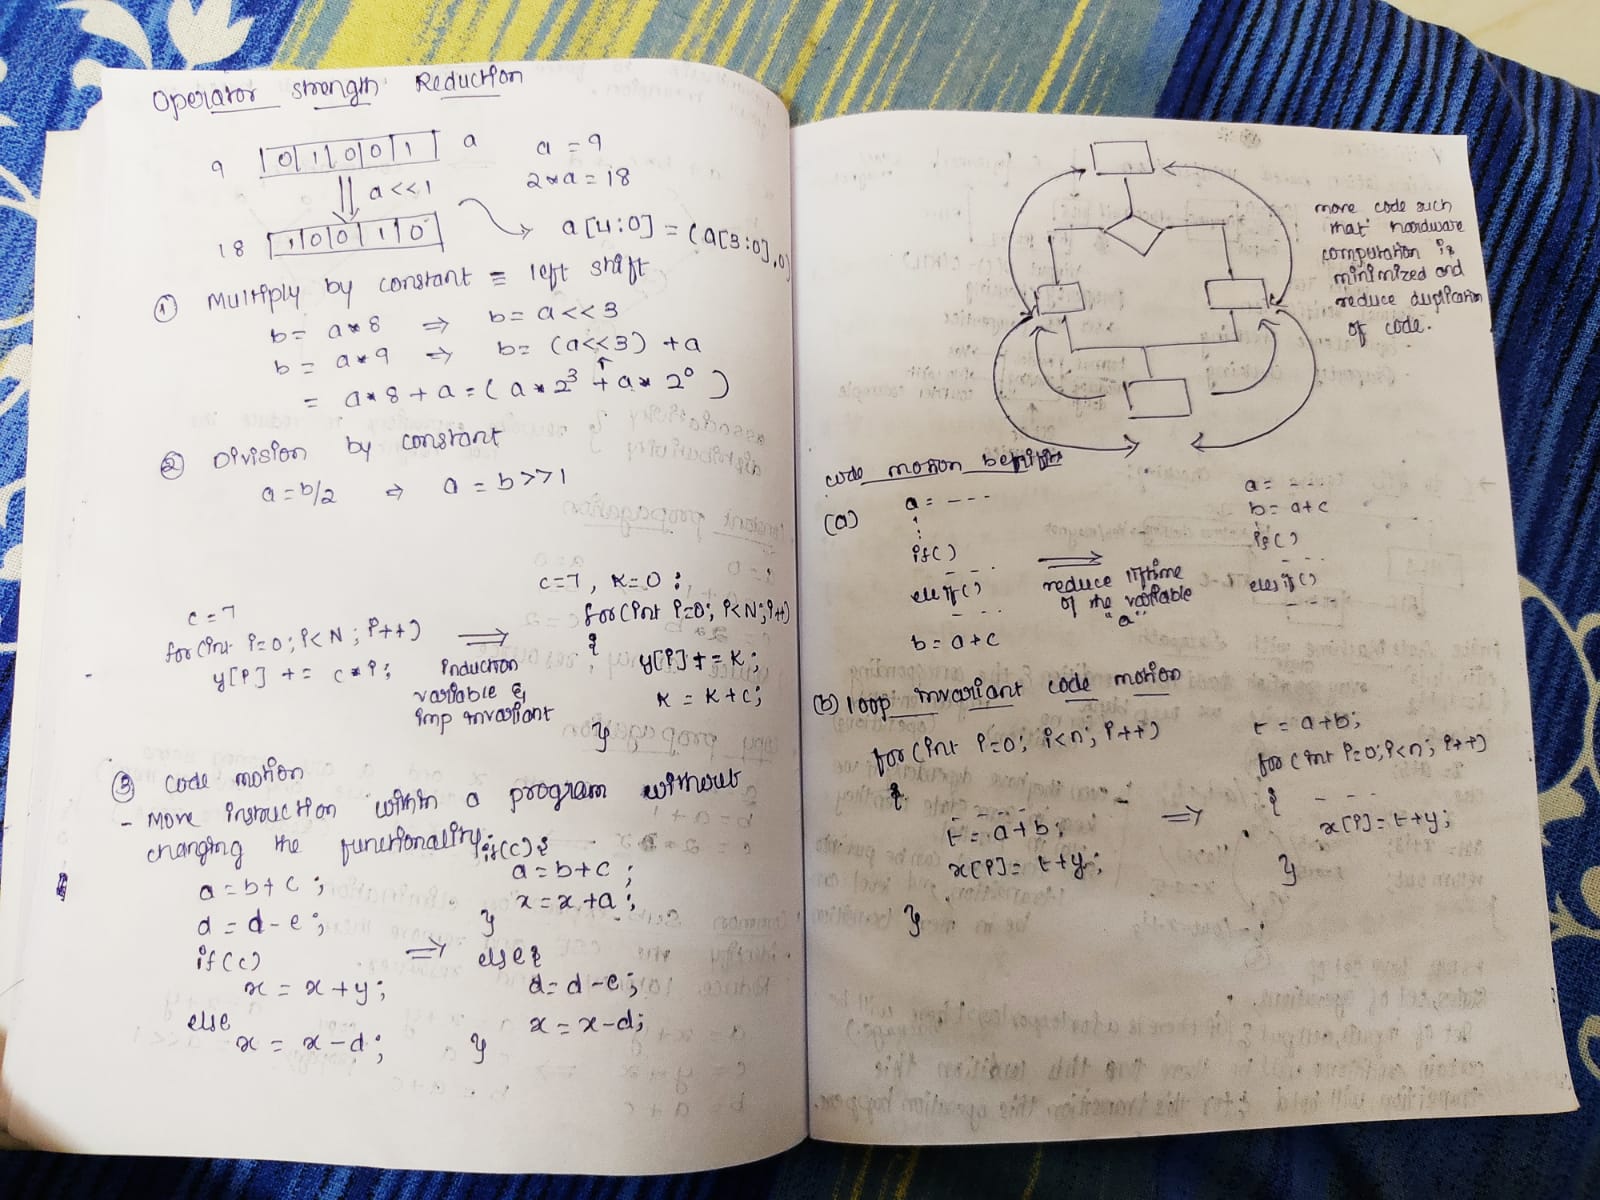 Operator strength Reduction
9 0 1 0 0 1 a a = 9
a<<1 2*a = 18
18 1 0 0 1 0 a[4:0] = (a[3:0],0)
① Multiply by constant = left shift
b = a*8 ⇒ b = a<<3
b = a*9 ⇒ b = (a<<3) + a
= a*8 + a = (a*2³ + a*2⁰)
② Division by constant
a = b/2 ⇒ a = b>>1
c=7
for(int i=0; i<N; i++)
y[i] += c*i;
⇒
induction
variable &
imp invariant
c=7, K=0;
for(int i=0; i<N; i++)
{
y[i] += K;
K = K+c;
}
③ Code motion
- Move instruction within a program without
changing the functionality.
a = b+c;
d = d-e;
if(c)
x = x+y;
else
x = x-d;
⇒
if(c){
a = b+c;
x = x+a;
}
else{
d = d-e;
x = x-d;
}
move code such
that hardware
computation is
minimized and
reduce duplication
of code.
code motion benifits
(a)
a = ---
if()
- - - .
elseif()
- - - .
b = a+c
⇒
reduce liftime
of the variable
"a"
a = - - -
b = a+c
if()
- - - .
elesif()
- - -
(b) loop invariant code motion
for(int i=0; i<n; i++)
{
- - - -
t = a+b;
x[i] = t+y;
}
⇒
t = a+b;
for(int i=0; i<n; i++)
{ - - -
x[i] = t+y;
}